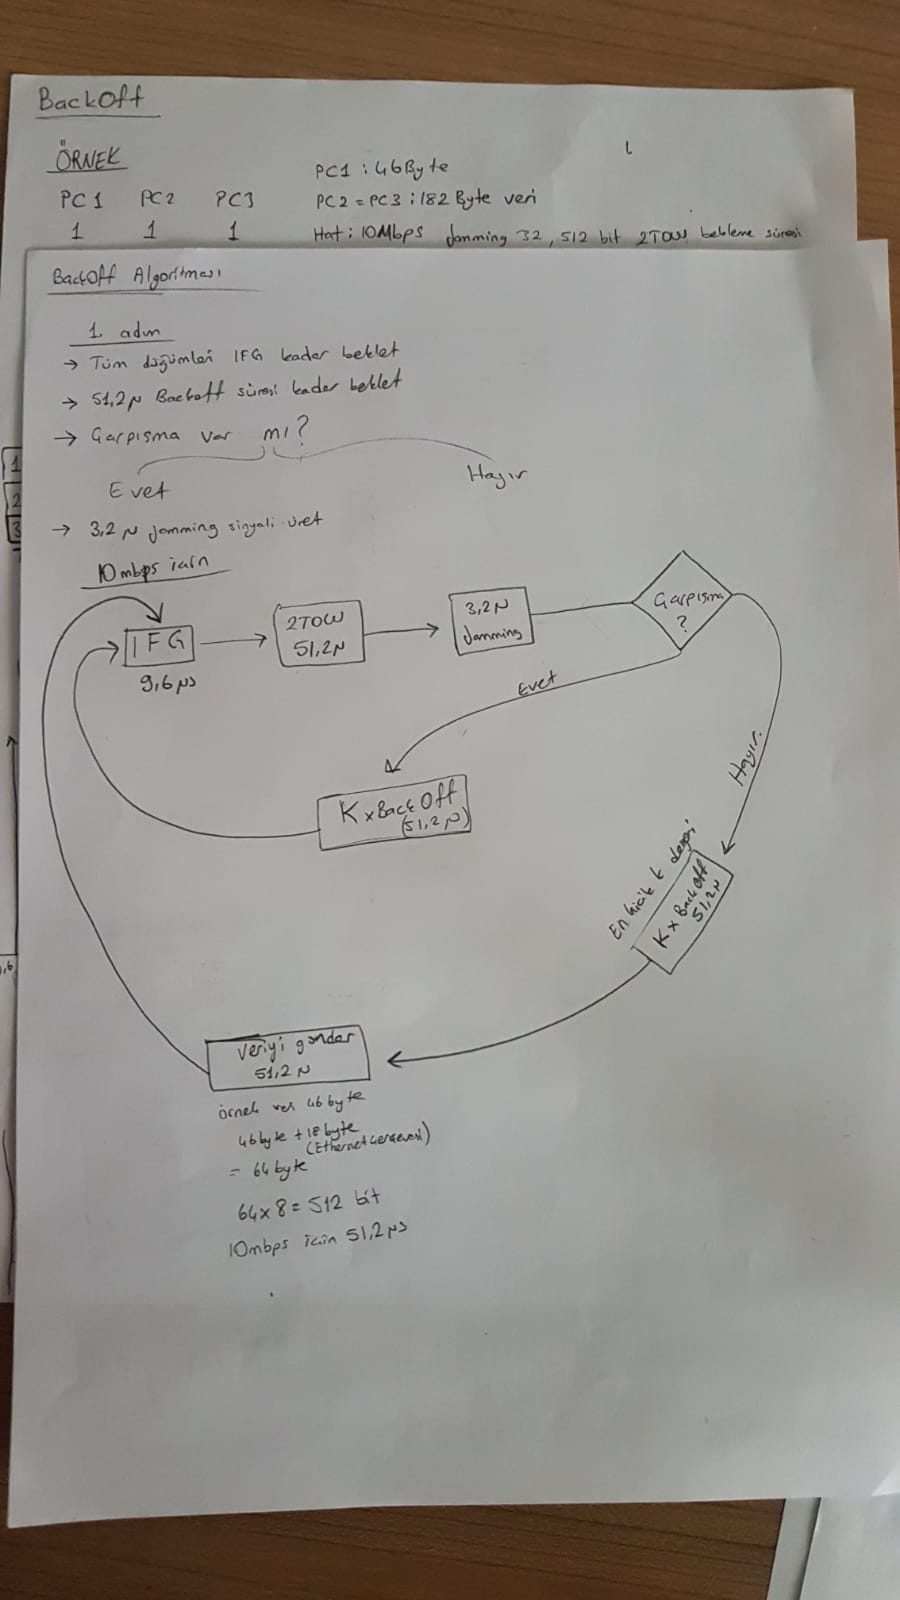 BackOff
ÖRNEK
PC1 PC2 PC3
1 1 1
PC1 : 46Byte
PC2 = PC3 : 182 Byte veri
Hat : 10Mbps Jamming 32, 512 bit 2TOW bekleme süresi
BackOff Algoritması
1. adım
→ Tüm düğümleri IFG kadar beklet
→ 51,2μ Backoff süresi kadar beklet
→ Çarpışma var mı?
Evet
Hayır
→ 3,2μ Jamming sinyali üret
10mbps için
IFG
9,6μs
2TOW
51,2μ
3,2μ
Jamming
Çarpışma
?
Evet
Hayır
K x BackOff
(51,2μ)
En küçük k değeri
K x BackOff
51,2μ
Veriyi gönder
51,2μ
örnek veri 46 byte
46byte + 18 byte
(Ethernet çerçevesi)
= 64 byte
64 x 8 = 512 bit
10mbps için 51,2μs
1
2
3